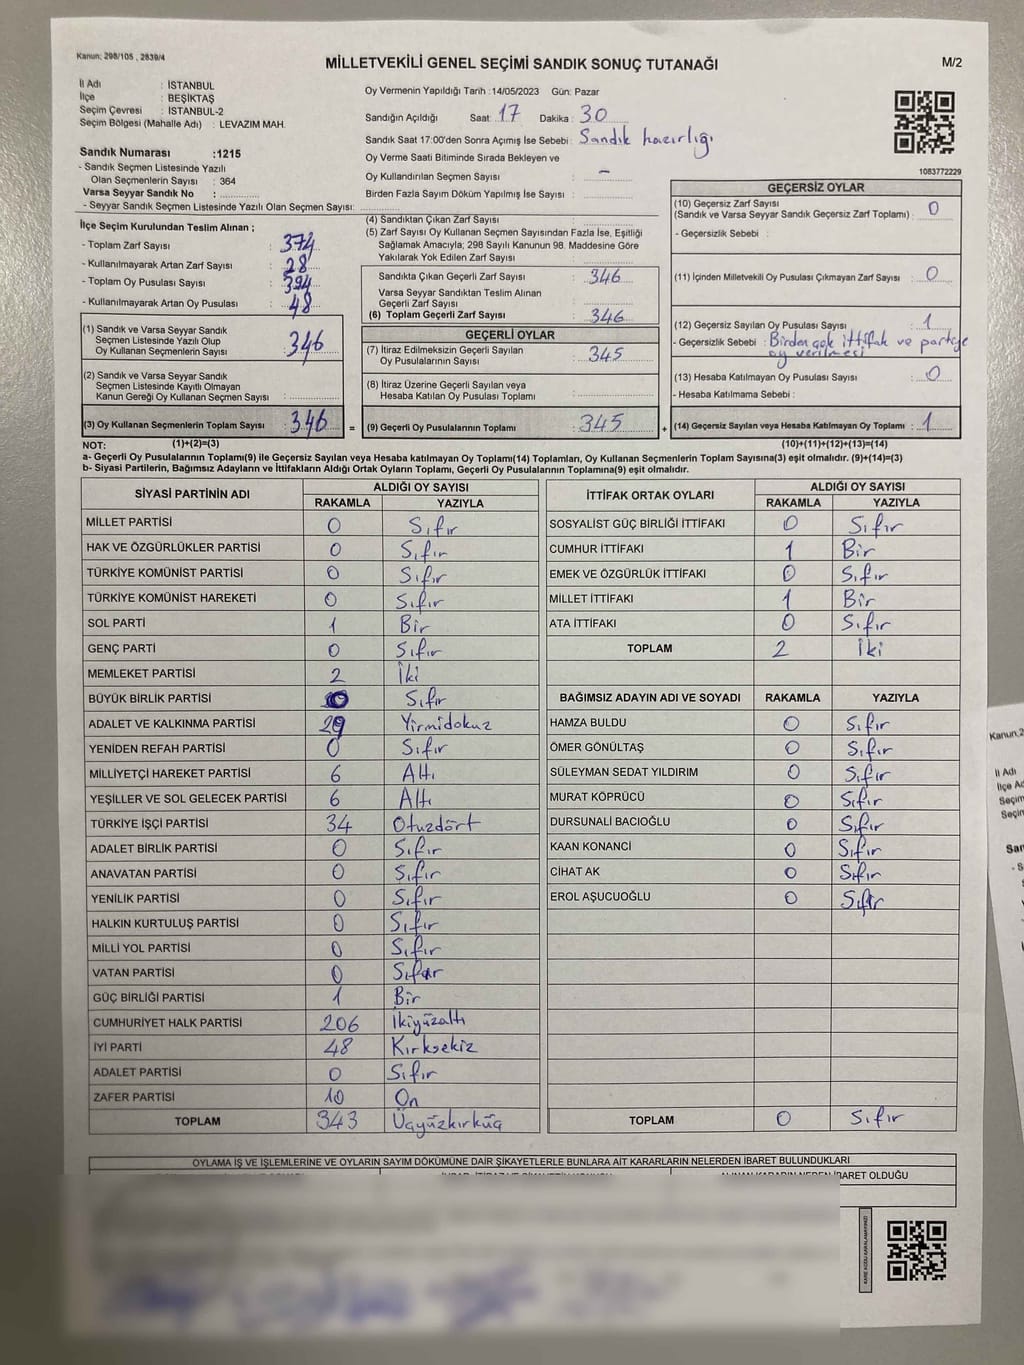 Kanun: 298/105 , 2839/4
MİLLETVEKİLİ GENEL SEÇİMİ SANDIK SONUÇ TUTANAĞI
M/2
İl Adı : İSTANBUL
İlçe : BEŞİKTAŞ
Seçim Çevresi : İSTANBUL-2
Seçim Bölgesi (Mahalle Adı) : LEVAZIM MAH.
Sandık Numarası :1215
- Sandık Seçmen Listesinde Yazılı
Olan Seçmenlerin Sayısı : 364
Varsa Seyyar Sandık No :
- Seyyar Sandık Seçmen Listesinde Yazılı Olan Seçmen Sayısı:
Oy Vermenin Yapıldığı Tarih :14/05/2023 Gün: Pazar
Sandığın Açıldığı Saat: 17 Dakika : 30
Sandık Saat 17:00'den Sonra Açımış İse Sebebi : Sandık hazırlığı
Oy Verme Saati Bitiminde Sırada Bekleyen ve
Oy Kullandırılan Seçmen Sayısı : -
Birden Fazla Sayım Döküm Yapılmış İse Sayısı :
1083772229
İlçe Seçim Kurulundan Teslim Alınan ;
- Toplam Zarf Sayısı : 374
- Kullanılmayarak Artan Zarf Sayısı : 28
- Toplam Oy Pusulası Sayısı : 394
- Kullanılmayarak Artan Oy Pusulası : 48
(1) Sandık ve Varsa Seyyar Sandık
Seçmen Listesinde Yazılı Olup
Oy Kullanan Seçmenlerin Sayısı : 346
(2) Sandık ve Varsa Seyyar Sandık
Seçmen Listesinde Kayıtlı Olmayan
Kanun Gereği Oy Kullanan Seçmen Sayısı :
(3) Oy Kullanan Seçmenlerin Toplam Sayısı : 346 =
(4) Sandıktan Çıkan Zarf Sayısı :
(5) Zarf Sayısı Oy Kullanan Seçmen Sayısından Fazla İse, Eşitliği
Sağlamak Amacıyla; 298 Sayılı Kanunun 98. Maddesine Göre
Yakılarak Yok Edilen Zarf Sayısı :
Sandıkta Çıkan Geçerli Zarf Sayısı : 346
Varsa Seyyar Sandıktan Teslim Alınan
Geçerli Zarf Sayısı :
(6) Toplam Geçerli Zarf Sayısı : 346
GEÇERLİ OYLAR
(7) İtiraz Edilmeksizin Geçerli Sayılan
Oy Pusulalarının Sayısı : 345
(8) İtiraz Üzerine Geçerli Sayılan veya
Hesaba Katılan Oy Pusulası Toplamı :
(9) Geçerli Oy Pusulalarının Toplamı : 345 +
GEÇERSİZ OYLAR
(10) Geçersiz Zarf Sayısı
(Sandık ve Varsa Seyyar Sandık Geçersiz Zarf Toplamı) : 0
- Geçersizlik Sebebi :
(11) İçinden Milletvekili Oy Pusulası Çıkmayan Zarf Sayısı : 0
(12) Geçersiz Sayılan Oy Pusulası Sayısı : 1
- Geçersizlik Sebebi : Birden çok ittifak ve partiye
oy verilmesi
(13) Hesaba Katılmayan Oy Pusulası Sayısı : 0
- Hesaba Katılmama Sebebi :
(14) Geçersiz Sayılan veya Hesaba Katılmayan Oy Toplamı : 1
NOT: (1)+(2)=(3) (10)+(11)+(12)+(13)=(14)
a- Geçerli Oy Pusulalarının Toplamı(9) ile Geçersiz Sayılan veya Hesaba katılmayan Oy Toplamı(14) Toplamları, Oy Kullanan Seçmenlerin Toplam Sayısına(3) eşit olmalıdır. (9)+(14)=(3)
b- Siyasi Partilerin, Bağımsız Adayların ve İttifakların Aldığı Ortak Oyların Toplamı, Geçerli Oy Pusulalarının Toplamına(9) eşit olmalıdır.
SİYASİ PARTİNİN ADI ALDIĞI OY SAYISI
RAKAMLA YAZIYLA
MİLLET PARTİSİ 0 Sıfır
HAK VE ÖZGÜRLÜKLER PARTİSİ 0 Sıfır
TÜRKİYE KOMÜNİST PARTİSİ 0 Sıfır
TÜRKİYE KOMÜNİST HAREKETİ 0 Sıfır
SOL PARTİ 1 Bir
GENÇ PARTİ 0 Sıfır
MEMLEKET PARTİSİ 2 İki
BÜYÜK BİRLİK PARTİSİ 0 Sıfır
ADALET VE KALKINMA PARTİSİ 29 Yirmidokuz
YENİDEN REFAH PARTİSİ 0 Sıfır
MİLLİYETÇİ HAREKET PARTİSİ 6 Altı
YEŞİLLER VE SOL GELECEK PARTİSİ 6 Altı
TÜRKİYE İŞÇİ PARTİSİ 34 Otuzdört
ADALET BİRLİK PARTİSİ 0 Sıfır
ANAVATAN PARTİSİ 0 Sıfır
YENİLİK PARTİSİ 0 Sıfır
HALKIN KURTULUŞ PARTİSİ 0 Sıfır
MİLLİ YOL PARTİSİ 0 Sıfır
VATAN PARTİSİ 0 Sıfır
GÜÇ BİRLİĞİ PARTİSİ 1 Bir
CUMHURİYET HALK PARTİSİ 206 İkiyüzaltı
İYİ PARTİ 48 Kırksekiz
ADALET PARTİSİ 0 Sıfır
ZAFER PARTİSİ 10 On
TOPLAM 343 Üçyüzkırküç
İTTİFAK ORTAK OYLARI ALDIĞI OY SAYISI
RAKAMLA YAZIYLA
SOSYALİST GÜÇ BİRLİĞİ İTTİFAKI 0 Sıfır
CUMHUR İTTİFAKI 1 Bir
EMEK VE ÖZGÜRLÜK İTTİFAKI 0 Sıfır
MİLLET İTTİFAKI 1 Bir
ATA İTTİFAKI 0 Sıfır
TOPLAM 2 İki
BAĞIMSIZ ADAYIN ADI VE SOYADI RAKAMLA YAZIYLA
HAMZA BULDU 0 Sıfır
ÖMER GÖNÜLTAŞ 0 Sıfır
SÜLEYMAN SEDAT YILDIRIM 0 Sıfır
MURAT KÖPRÜCÜ 0 Sıfır
DURSUNALİ BACIOĞLU 0 Sıfır
KAAN KONANCİ 0 Sıfır
CİHAT AK 0 Sıfır
EROL AŞUCUOĞLU 0 Sıfır
TOPLAM 0 Sıfır
OYLAMA İŞ VE İŞLEMLERİNE VE OYLARIN SAYIM DÖKÜMÜNE DAİR ŞİKAYETLERLE BUNLARA AİT KARARLARIN NELERDEN İBARET BULUNDUKLARI
İBARET OLDUĞU
Kanun
İl Adı